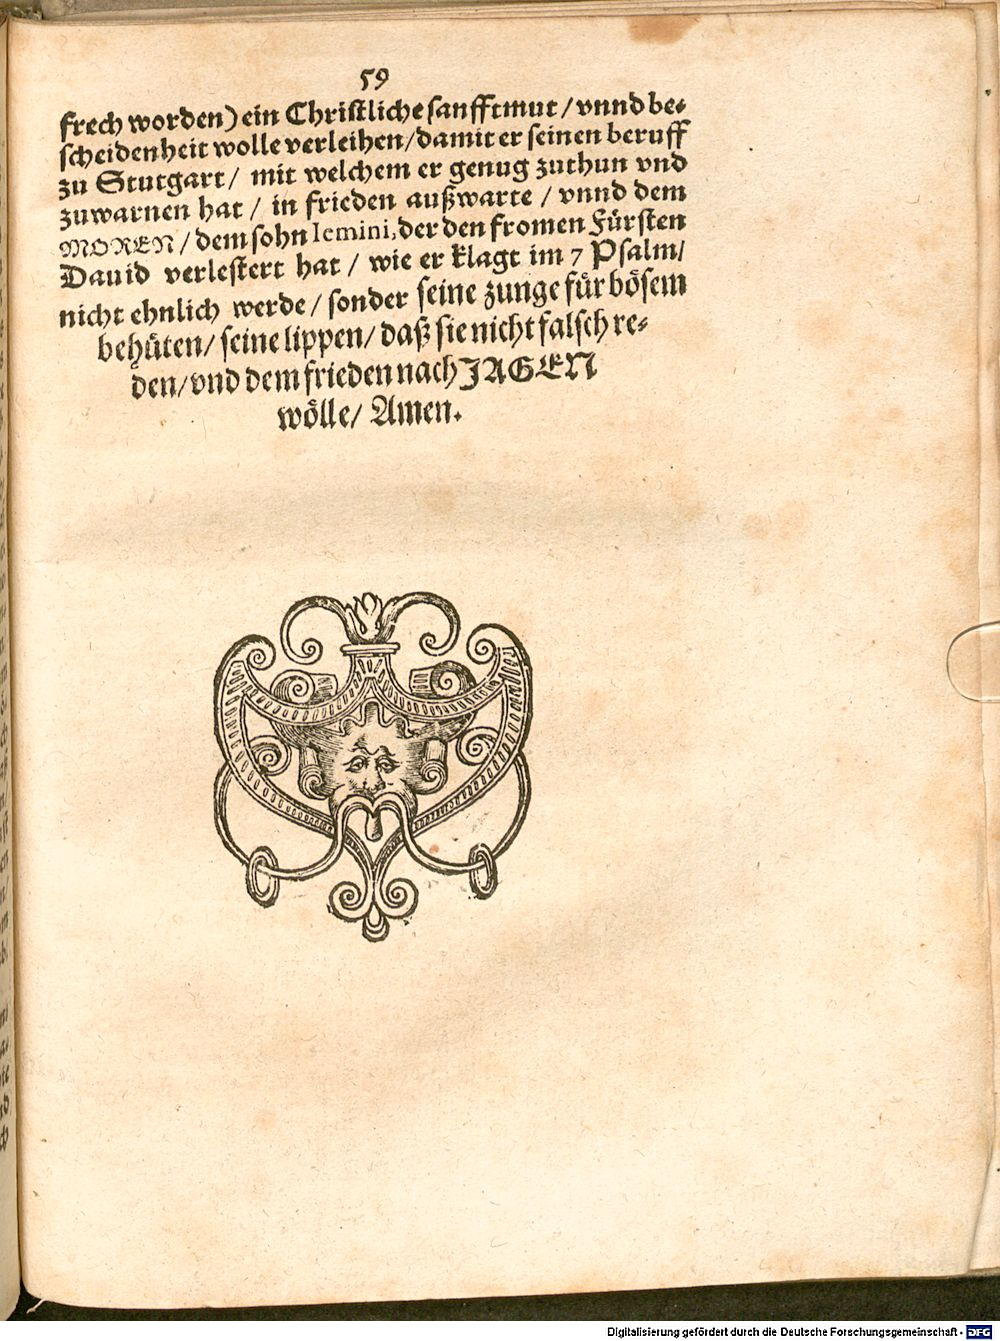 59
frech worden) ein Christliche sanfftmut / vnnd be-
scheidenheit wolle verleihen / damit er seinen beruff
zu Stutgart / mit welchem er genug zuthun vnd
zuwarnen hat / in frieden außwarte / vnnd dem
MOREN / dem sohn Iemini, der den fromen Fürsten
Dauid verlestert hat / wie er klagt im 7 Psalm /
nicht ehnlich werde / sonder seine zunge für bösem
behüten / seine lippen / daß sie nicht falsch re-
den / vnd dem frieden nach JAGEN
wölle / Amen.
Digitalisierung gefördert durch die Deutsche Forschungsgemeinschaft - DFG